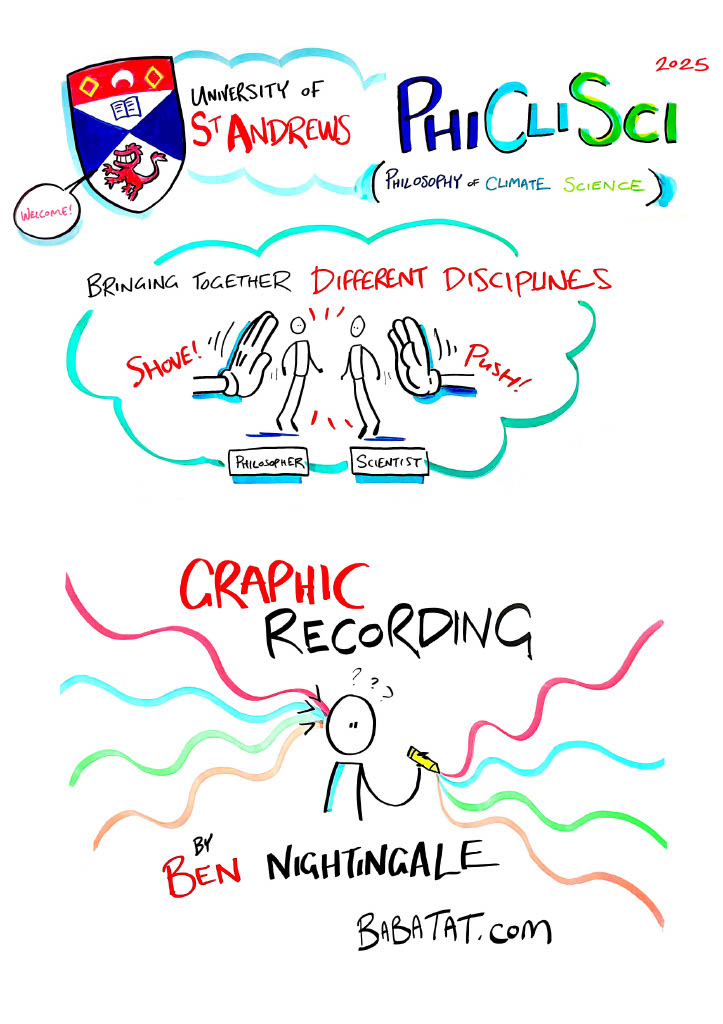 2025
UNIVERSITY OF
ST ANDREWS
PHICLISCI
(PHILOSOPHY OF CLIMATE SCIENCE)
WELCOME!
BRINGING TOGETHER DIFFERENT DISCIPLINES
SHOVE!
PUSH!
PHILOSOPHER
SCIENTIST
GRAPHIC
RECORDING
???
BY
BEN NIGHTINGALE
BABATAT.COM